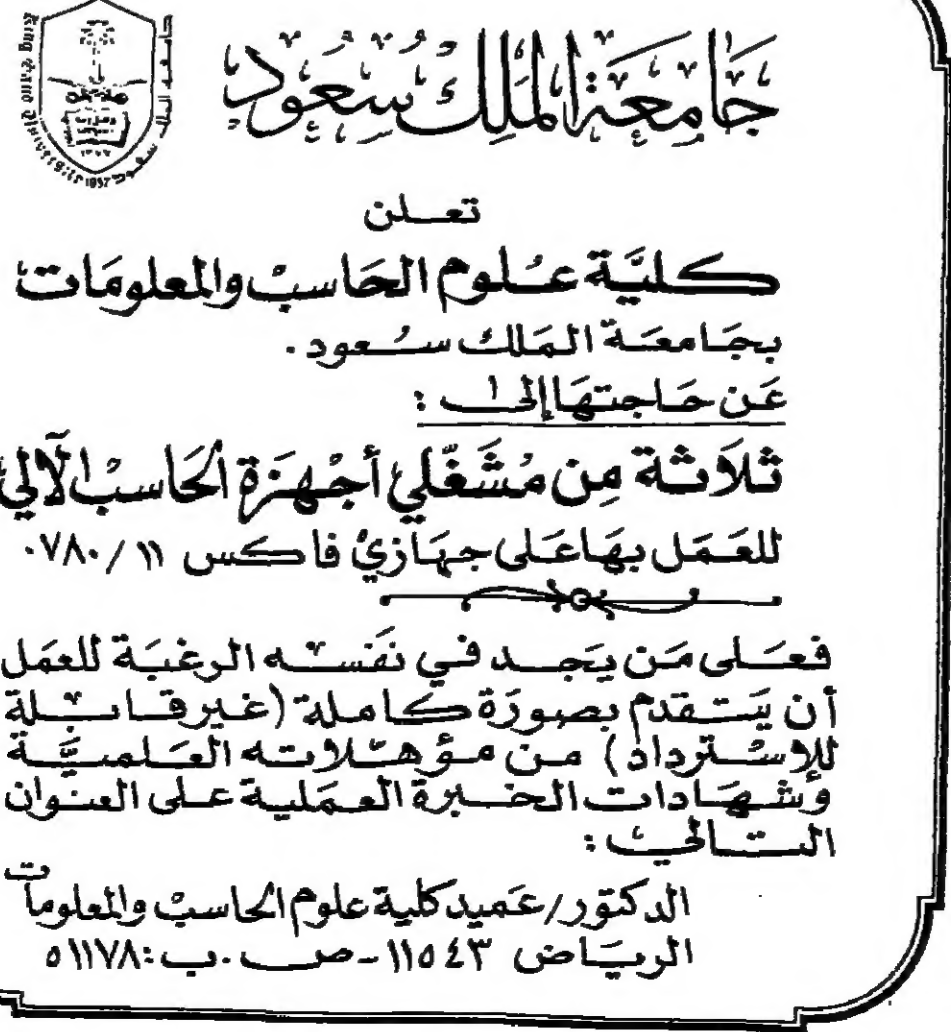 جَامِعَة المَلِك سُعُود
جامعة الملك سعود
King Saud University 1957
١٣٧٧
تعلن
كليَّة عُلوم الحَاسبْ والمعلومَات
بجَامعَة المَلك سُعود .
عَن حَاجتهَا إلى :
ثلَاثة مِن مُشَغّلي أجْهزَة الحَاسبْ الآلي
للعَمَل بهَا عَلى جهَازيْ فاكس ١١ / ٧٨٠٠
فعَلى مَن يَجد في نَفسه الرغبَة للعمَل
أن يَتقدم بصورَة كاملة (غير قابلة
للإستْرداد) من مؤهلاته العَلميَّة
وَشهَادات الخبرة العمَلية على العنوان
التالي :
الدكتور/عَميد كلية علوم الحاسبْ والمعلومات
الريَاض ١١٥٤٣ - ص . ب : ٥١١٧٨